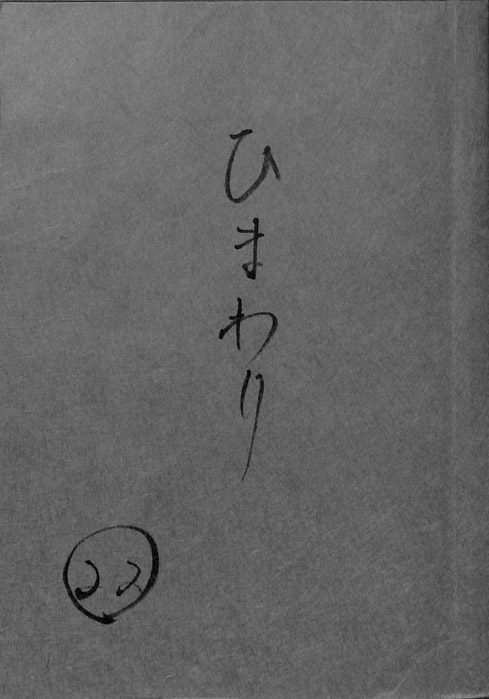 ひまわり
22